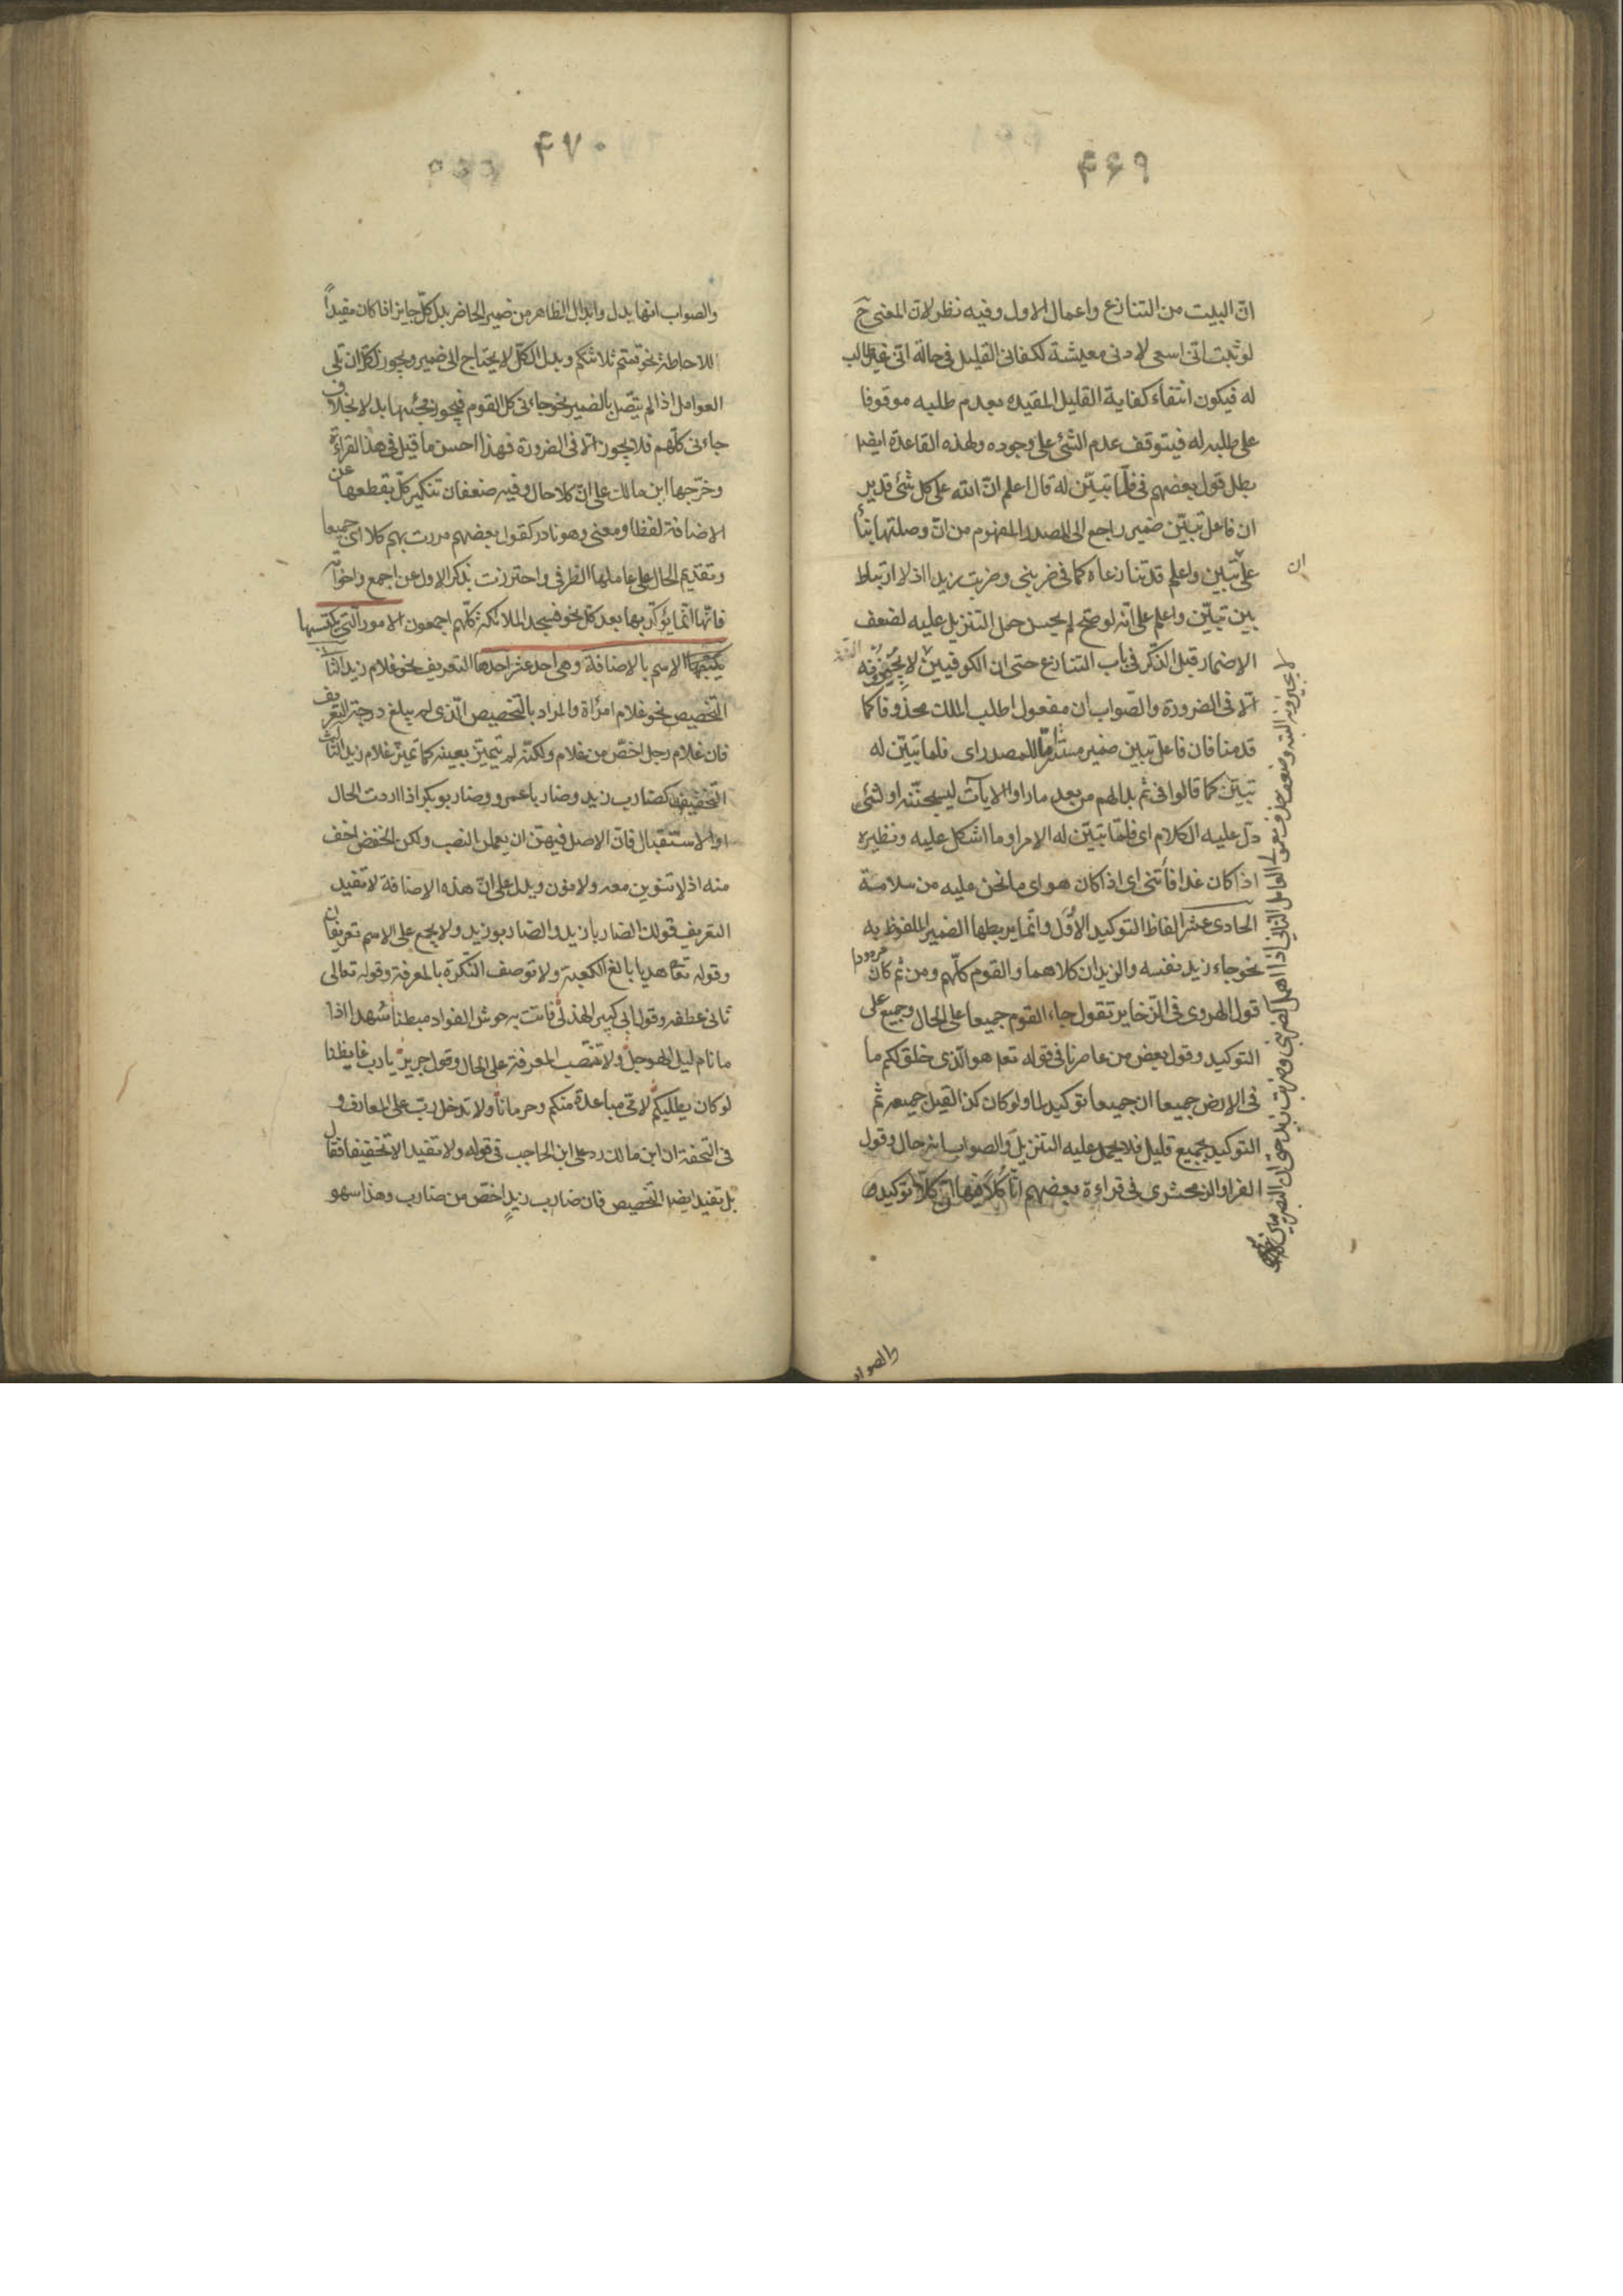 ۴۶۹
انّ البيت من التنازع واعمال الاول وفيه نظر لانّ المعنى ح
لو ثبت انّى اسعى لادنى معيشة لكفانى القليل فى حالة انّى غير طالب
له فيكون انتفاء كفاية القليل المقيده بعدم طلبه موقوفا
على طلبه له فيتوقف عدم الشئ على وجوده ولهذه القاعدة ايضا
بطل قول بعضهم فى فلمّا تبيّن له قال اعلم انّ الله على كل شئ قدير
ان فاعل تبيّن ضمير راجع الى المصدر المفهوم من انّ وصلتها بناً
على تبيّن واعلم قد تنازعاه كما فى ضربنى وضربت زيدا اذ لا ارتباط
ان
بين تبيّن واعلم على انّه لو صحّ لم يحسن حمل التنزيل عليه لضعف
الاضمار قبل الذّكر فى باب التنازع حتى ان الكوفيين لا يجيزونه
الّا فى الضرورة والصّواب ان مفعول اطلب الملك محذوفا كما
قدمنا فان فاعل تبين ضمير مستتر امّا للمصدر اى فلما تبيّن له
تبيّن كما قالوا فى ثم بدا لهم من بعد ما راوا الايات ليسجننّه او لشئ
دلّ عليه الكلام اى فلمّا تبيّن له الامر او ما اشكل عليه ونظيره
اذا كان غدا فأتنى اى اذا كان هو اى ما نحن عليه من سلامة
الحادى عشر الفاظ التوكيد الاُوَل وانّما يربطها الضمير الملفوظ به
نحو جاء زيد نفسه والزيدان كلاهما والقوم كلّهم ومن ثم كان مردودا
قول الهروى فى الذخاير تقول جاء القوم جميعا على الحال وجميع على
التوكيد وقول بعض من عاصرنا فى قوله تعم هو الّذى خلق لكم ما
فى الارض جميعا ان جميعا توكيد لما ولو كان كذا لقيل جميعه ثم
التوكيد بجميع قليل فلا يحمل عليه التنزيل والصواب انه حال وقول
الفرا والزمخشرى فى قراءة بعضهم انّا كُلاًّ فيها انّ كلّا توكيد
لا يجيزونه البته وضعف حذف مفعول العامل الثانى اذا اهمل كضربنى وضربت زيد حتى ان البصريين
والصواب
۴۷۰
والصواب انها بدل وابدال الظاهر من ضمير الحاضر بدل كلّ جايز اذا كان مفيداً
للاحاطة نحو قمتم ثلاثتكم وبدل الكلّ لا يحتاج الى ضمير ويجوز لكلّ ان تلى
العوامل اذا لم يتّصل بالضمير نحو جاءنى كل القوم فيجوز مجيئها بدلا بخلاف
جاءنى كلّهم فلا يجوز الّا فى الضرورة فهذا احسن ما قيل فى هذا القراءة
وخرّجها ابن مالك على انّ كلا حال وفيه ضعفان تنكير كلّ بقطعها عن
الاضافة لفظا ومعنى وهو نادر كقول بعضهم مررت بهم كلا اى جميعا
وتقديم الحال على عاملها الظرفى واحترزت بذكر الاول عن اجمع واخواته
فانّها انّما يؤكّد بها بعد كلّ نحو فسجد الملائكة كلّهم اجمعون الامور التى يكتسبها
الاسم بالاضافة وهى احد عشر احدها التعريف نحو غلام زيد الثا
التخصيص نحو غلام امرأة والمراد بالتخصيص الّذى لم يبلغ درجة التعريف
فان غلام رجل اخصّ من غلام ولكنّه لم يتميّز بعينه كما تميّز غلام زيد الثالث
التّخفيف كضارب زيد وضاربا عمرو وضاربو بكر اذا اردت الحال
او الاستقبال فانّ الاصل فيهنّ ان يعملن النصب ولكن الخفض اخف
منه اذ لا تنوين معه ولا نون ويدل على انّ هذه الاضافة لا تفيد
التعريف قولك الضاربا زيد والضاربو زيد ولا يجمع على الاسم تعريفان
وقوله تعا هديا بالغ الكعبة ولا توصف النّكرة بالمعرفة وقوله تعالى
ثانى عطفه وقول ابى كبير الهذلى فاتت به حوش الفواد مبطنا سُهدا اذا
ما نام ليل الهوجل ولا تنتصب المعرفة على الحال وقول جرير يا ربّ غابطنا
لو كان يطلبكم لاقى مباعدة منكم وحرمانا ولا تدخل ربّ على المعارف و
فى التحفة ان ابن مالك رد على ابن الحاجب فى قوله ولا تفيد الا تخفيفا فقال
بل تفيد ايضا التخصيص فان ضارب زيدٍ اخصّ من ضارب وهذا سهو